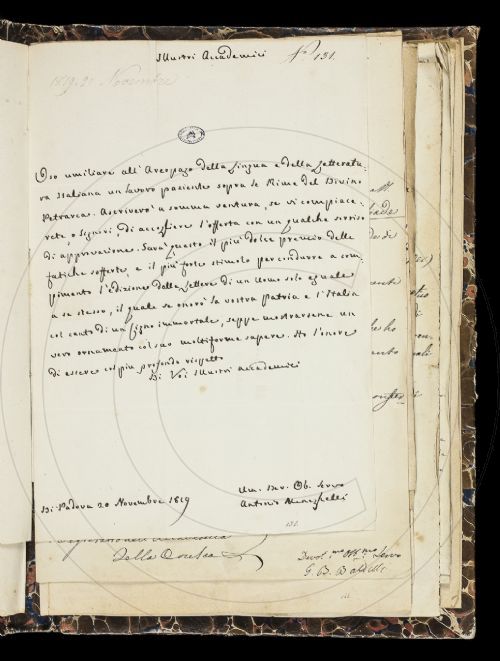 Illustri Accademici
N° 131.
1819. 20 Novembre
Oso umiliare all'Areopago della Lingua e della Letteratu-
ra Italiana un lavoro paziente sopra le Rime del Divino
Petrarca. Ascriverò a somma ventura, se vi compiace-
rete, o Signori, di accogliere l'offerta con un qualche sorriso
di approvazione. Sarà questo il più dolce premio delle
fatiche sofferte, e il più forte stimolo per condurre a com-
pimento l'edizione delle Lettere di un Uomo solo eguale
a se stesso, il quale se onorò la vostra Patria e l'Italia
col canto di un Cigno immortale, seppe mostrarsene un
vero ornamento col suo multiforme sapere. Ho l'onore
di essere col più profondo rispetto
Di Voi Illustri Accademici
Um. Dev. Ob. Servo
Di Padova 20 Novembre 1819
Antonio Meneghelli
131.
Della Crusca
Servo
G. B. Baldelli